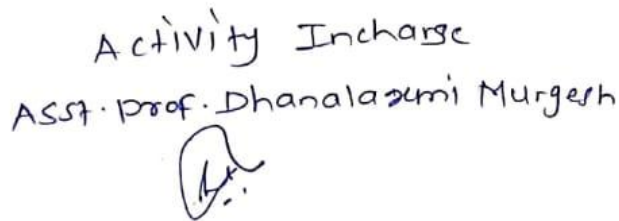 Activity Incharge
Asst. Prof. Dhanalaxmi Murgesh